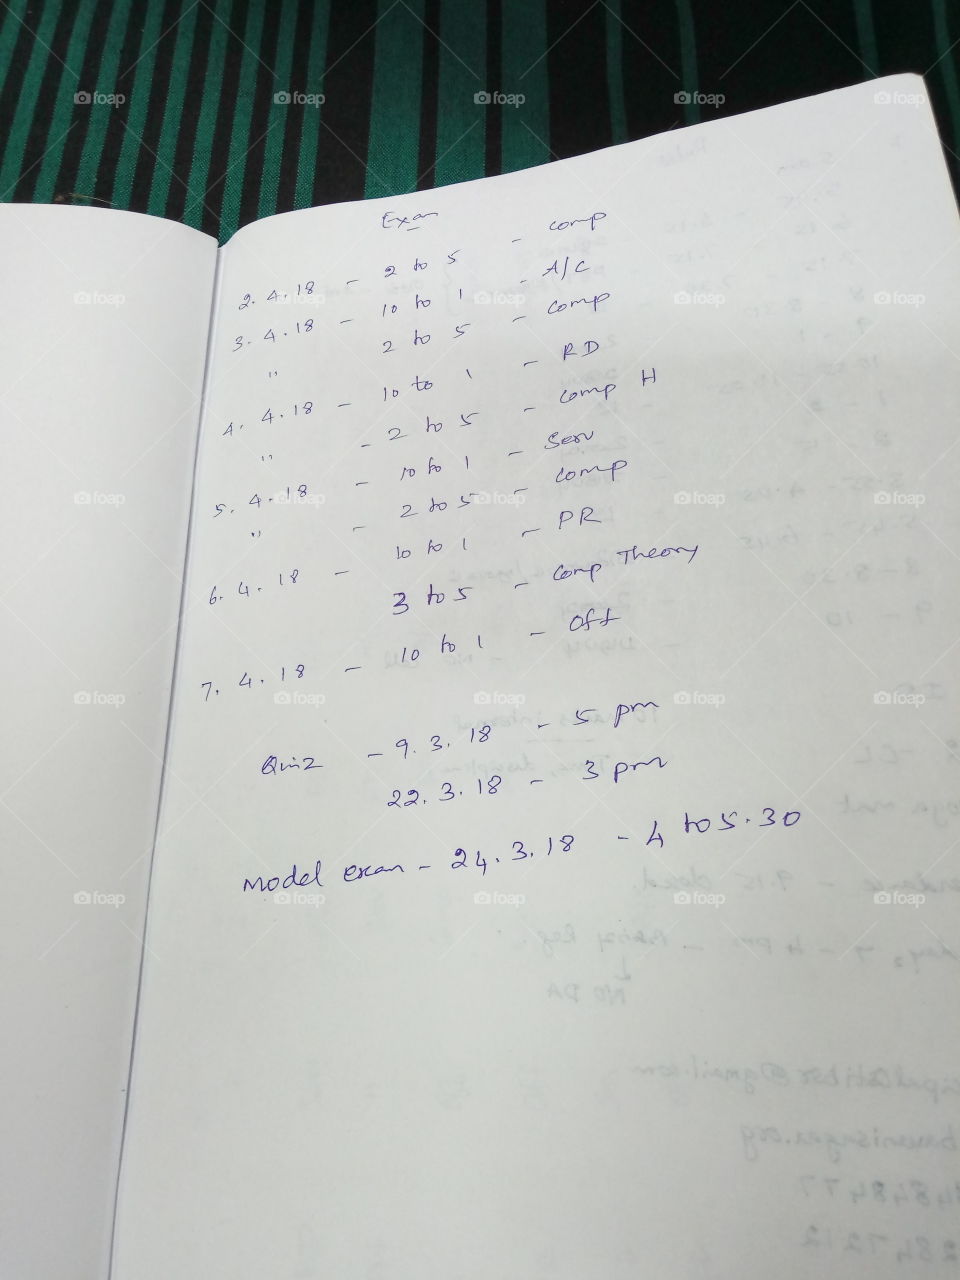 Exam
2.4.18 - 2 to 5 - comp
3.4.18 - 10 to 1 - A/C
" 2 to 5 - comp
4.4.18 - 10 to 1 - RD
" - 2 to 5 - comp H
5.4.18 - 10 to 1 - Serv
" - 2 to 5 - comp
6.4.18 - 10 to 1 - PR
3 to 5 - comp Theory
7.4.18 - 10 to 1 - Off
Quiz - 9.3.18 - 5 pm
22.3.18 - 3 pm
Model exam - 24.3.18 - 4 to 5.30
foap